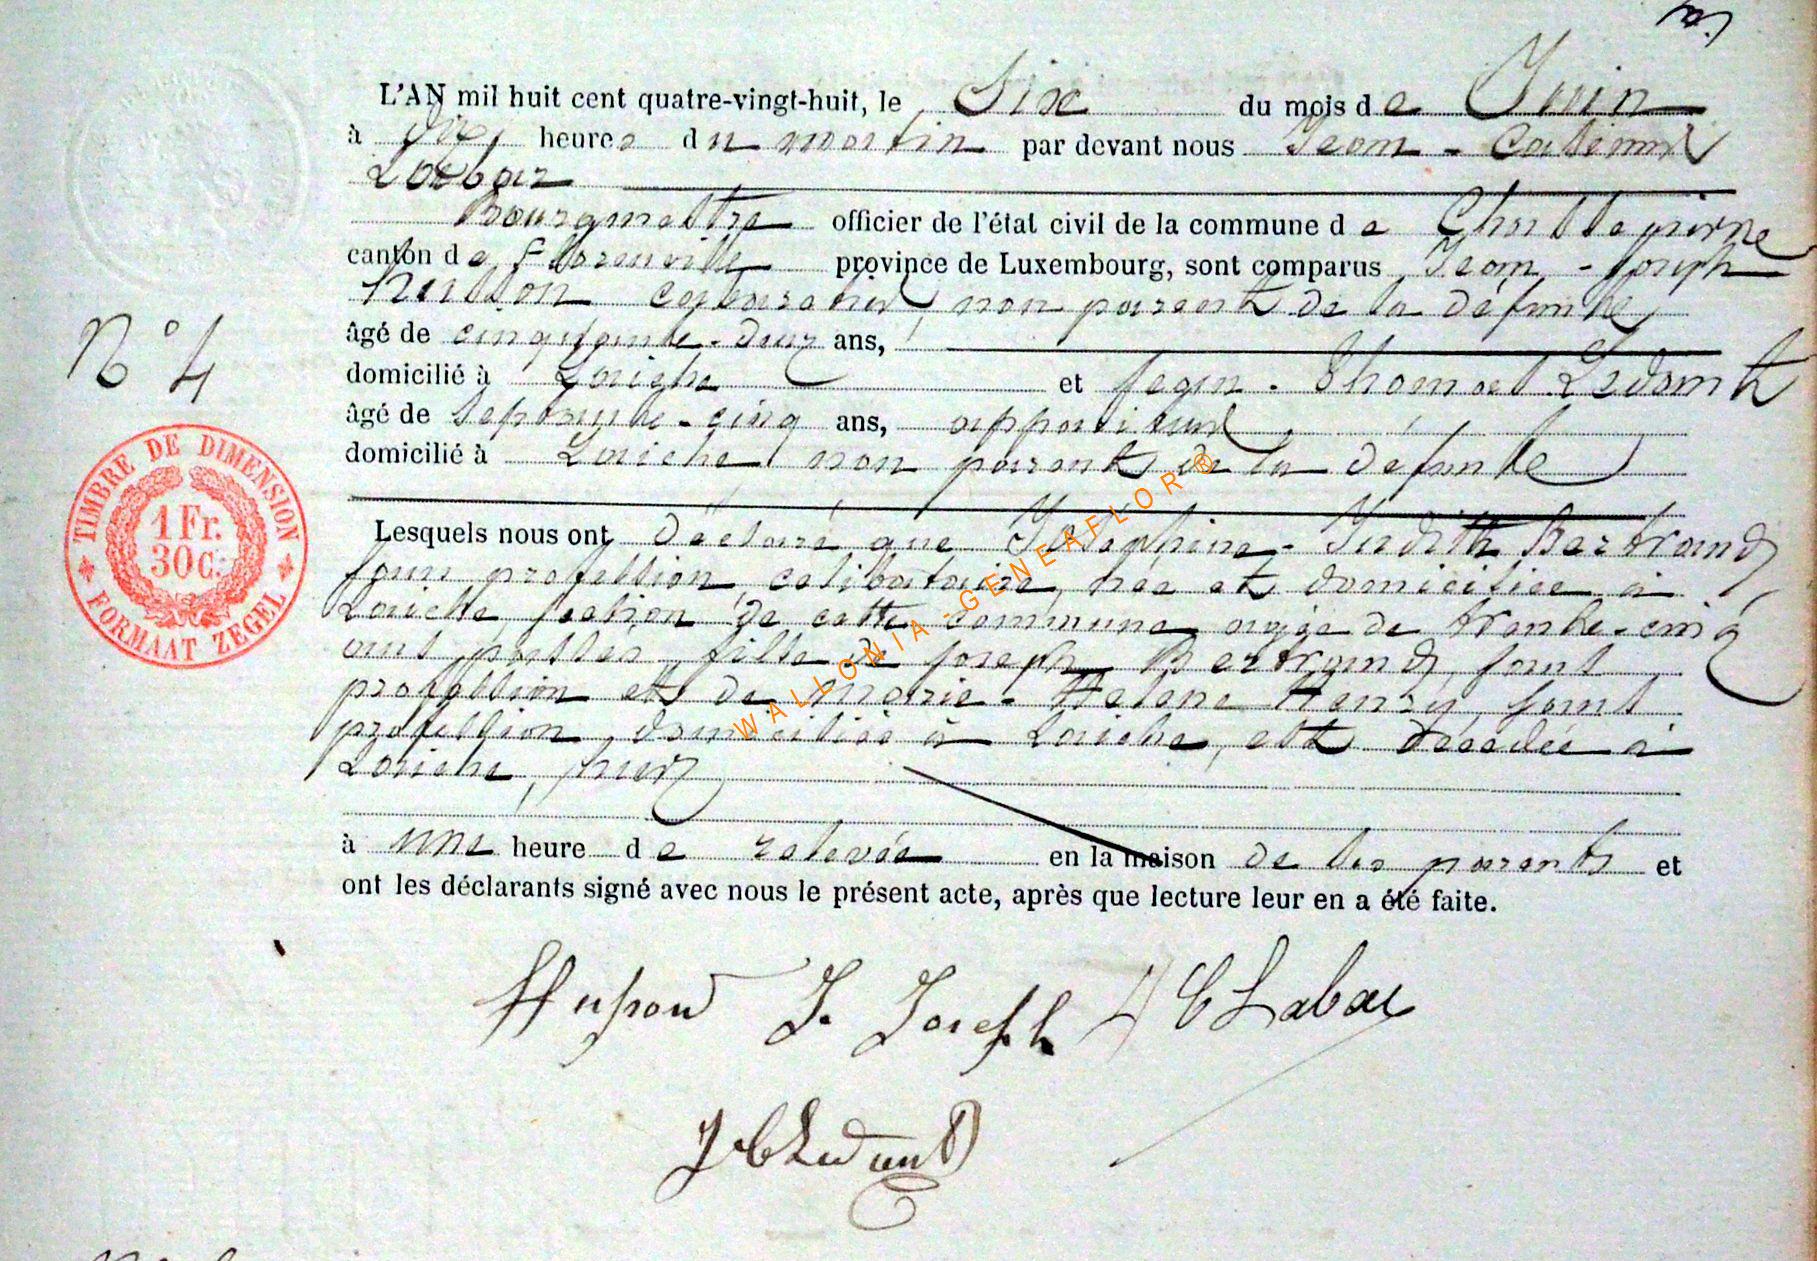 L'AN mil huit cent quatre-vingt-huit, le Six du mois de Juin
à dix heures du matin par devant nous Jean-
Labar
Bourgmestre officier de l'état civil de la commune de Chassepierre
canton de Florenville province de Luxembourg, sont comparus Jean-Joseph
Husson non parent de la défunte
âgé de cinquante-deux ans,
N° 4
domicilié à Laiche et Jean-Thomas Ledant
âgé de septante-cinq ans,
domicilié à Laiche non parent de la défunte
TIMBRE DE DIMENSION
1 Fr.
30 C.
FORMAAT ZEGEL
Lesquels nous ont déclaré que Joséphine-Judith Bertrand,
sans profession, celibataire, née et domiciliée à
Laiche section de cette commune agée de trente-cinq
ans passés, fille de Joseph Bertrand, sans
profession et de Marie-Helene Henry, sans
profession, domiciliés à Laiche, est décedée à
Laiche, hier
à une heure de relevée en la maison de ses parents et
ont les déclarants signé avec nous le présent acte, après que lecture leur en a été faite.
Husson J. Joseph Labar
Ledant
WALLONIA-GENEAFLOR®